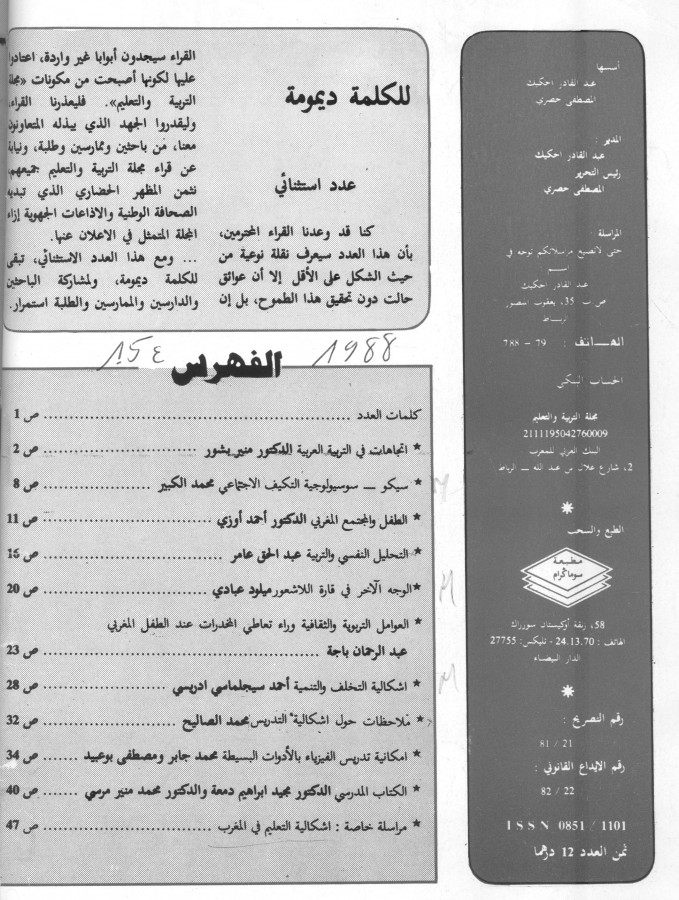 أسسها
عبد القادر احكيك
المصطفى حصري
المدير :
عبد القادر احكيك
رئيس التحرير
المصطفى حصري
المراسلة :
حتى لاتضيع مراسلاتكم توجه في
اسم
عبد القادر احكيك
ص ب 35، يعقوب المنصور
الرباط
الهاتف : 79 - 788
الحساب البنكي
مجلة التربية والتعليم
2111195042760009
البنك العربي للمغرب
2، شارع علال بن عبد الله ـ الرباط
الطبع والسحب
مطبعة
سوماگرام
58، زنقة أوكيستان سورراك
الهاتف : 24.13.70 - تليكس: 27755
الدار البيضاء
رقم التصريح :
21 / 81
رقم الايداع القانوني :
22 / 82
ISSN 0851 / 1101
ثمن العدد 12 درهما
للكلمة ديمومة
عدد استثنائي
كنا قد وعدنا القراء المحترمين،
بأن هذا العدد سيعرف نقلة نوعية من
حيث الشكل على الأقل إلا أن عوائق
حالت دون تحقيق هذا الطموح، بل إن
القراء سيجدون أبوابا غير واردة، اعتادوا
عليها لكونها أصبحت من مكونات «مجلة
التربية والتعليم». فليعذرنا القراء،
وليقدروا الجهد الذي يبذله المتعاونون
معنا، من باحثين وممارسين وطلبة، ونيابة
عن قراء مجلة التربية والتعليم جميعهم،
نثمن المظهر الحضاري الذي تبديه
الصحافة الوطنية والاذاعات الجهوية إزاء
المجلة المتمثل في الاعلان عنها.
... ومع هذا العدد الاستثنائي، تبقى
للكلمة ديمومة، ولمشاركة الباحثين
والدارسين والممارسين والطلبة استمرار.
1988
الفهرس
كلمات العدد ........ ص 1
* اتجاهات في التربية العربية الدكتور منير بشور ........ ص 2
* سيكو ــ سوسيولوجية التكيف الاجتماعي محمد الكبير ........ ص 8
* الطفل والمجتمع المغربي الدكتور أحمد أوزي ........ ص 11
* التحليل النفسي والتربية عبد الحق عامر ........ ص 15
* الوجه الآخر في قارة اللاشعور ميلود عبادي ........ ص 20
* العوامل التربوية والثقافية وراء تعاطي المخدرات عند الطفل المغربي
عبد الرحمان باجة ........ ص 23
* اشكالية التخلف والتنمية أحمد سيجلماسي ادريسي ........ ص 28
* ملاحظات حول اشكالية التدريس محمد الصاليح ........ ص 32
* امكانية تدريس الفيزياء بالأدوات البسيطة محمد جابر ومصطفى بوعبيد ....... ص 34
* الكتاب المدرسي الدكتور مجيد ابراهيم دمعة والدكتور محمد منير مرسي ........ ص 40
* مراسلة خاصة : اشكالية التعليم في المغرب ........ ص 47